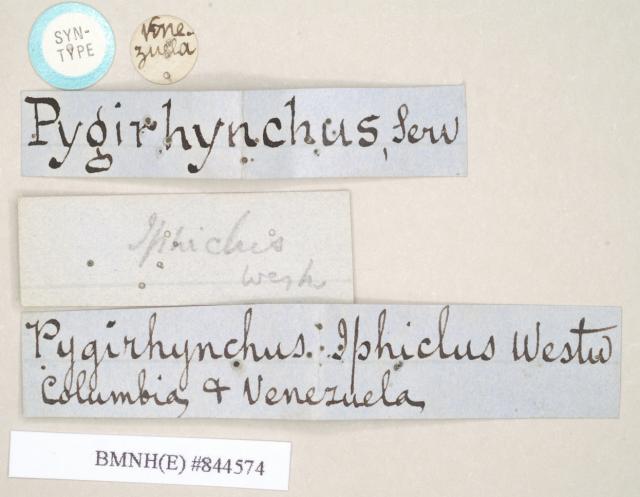 SYN-
TYPE
Vene-
zuela
Pygirhynchus, Serv
Iphiclus
Westw
Pygirhynchus. Iphiclus Westw
Columbia, & Venezuela,
BMNH(E) #844574